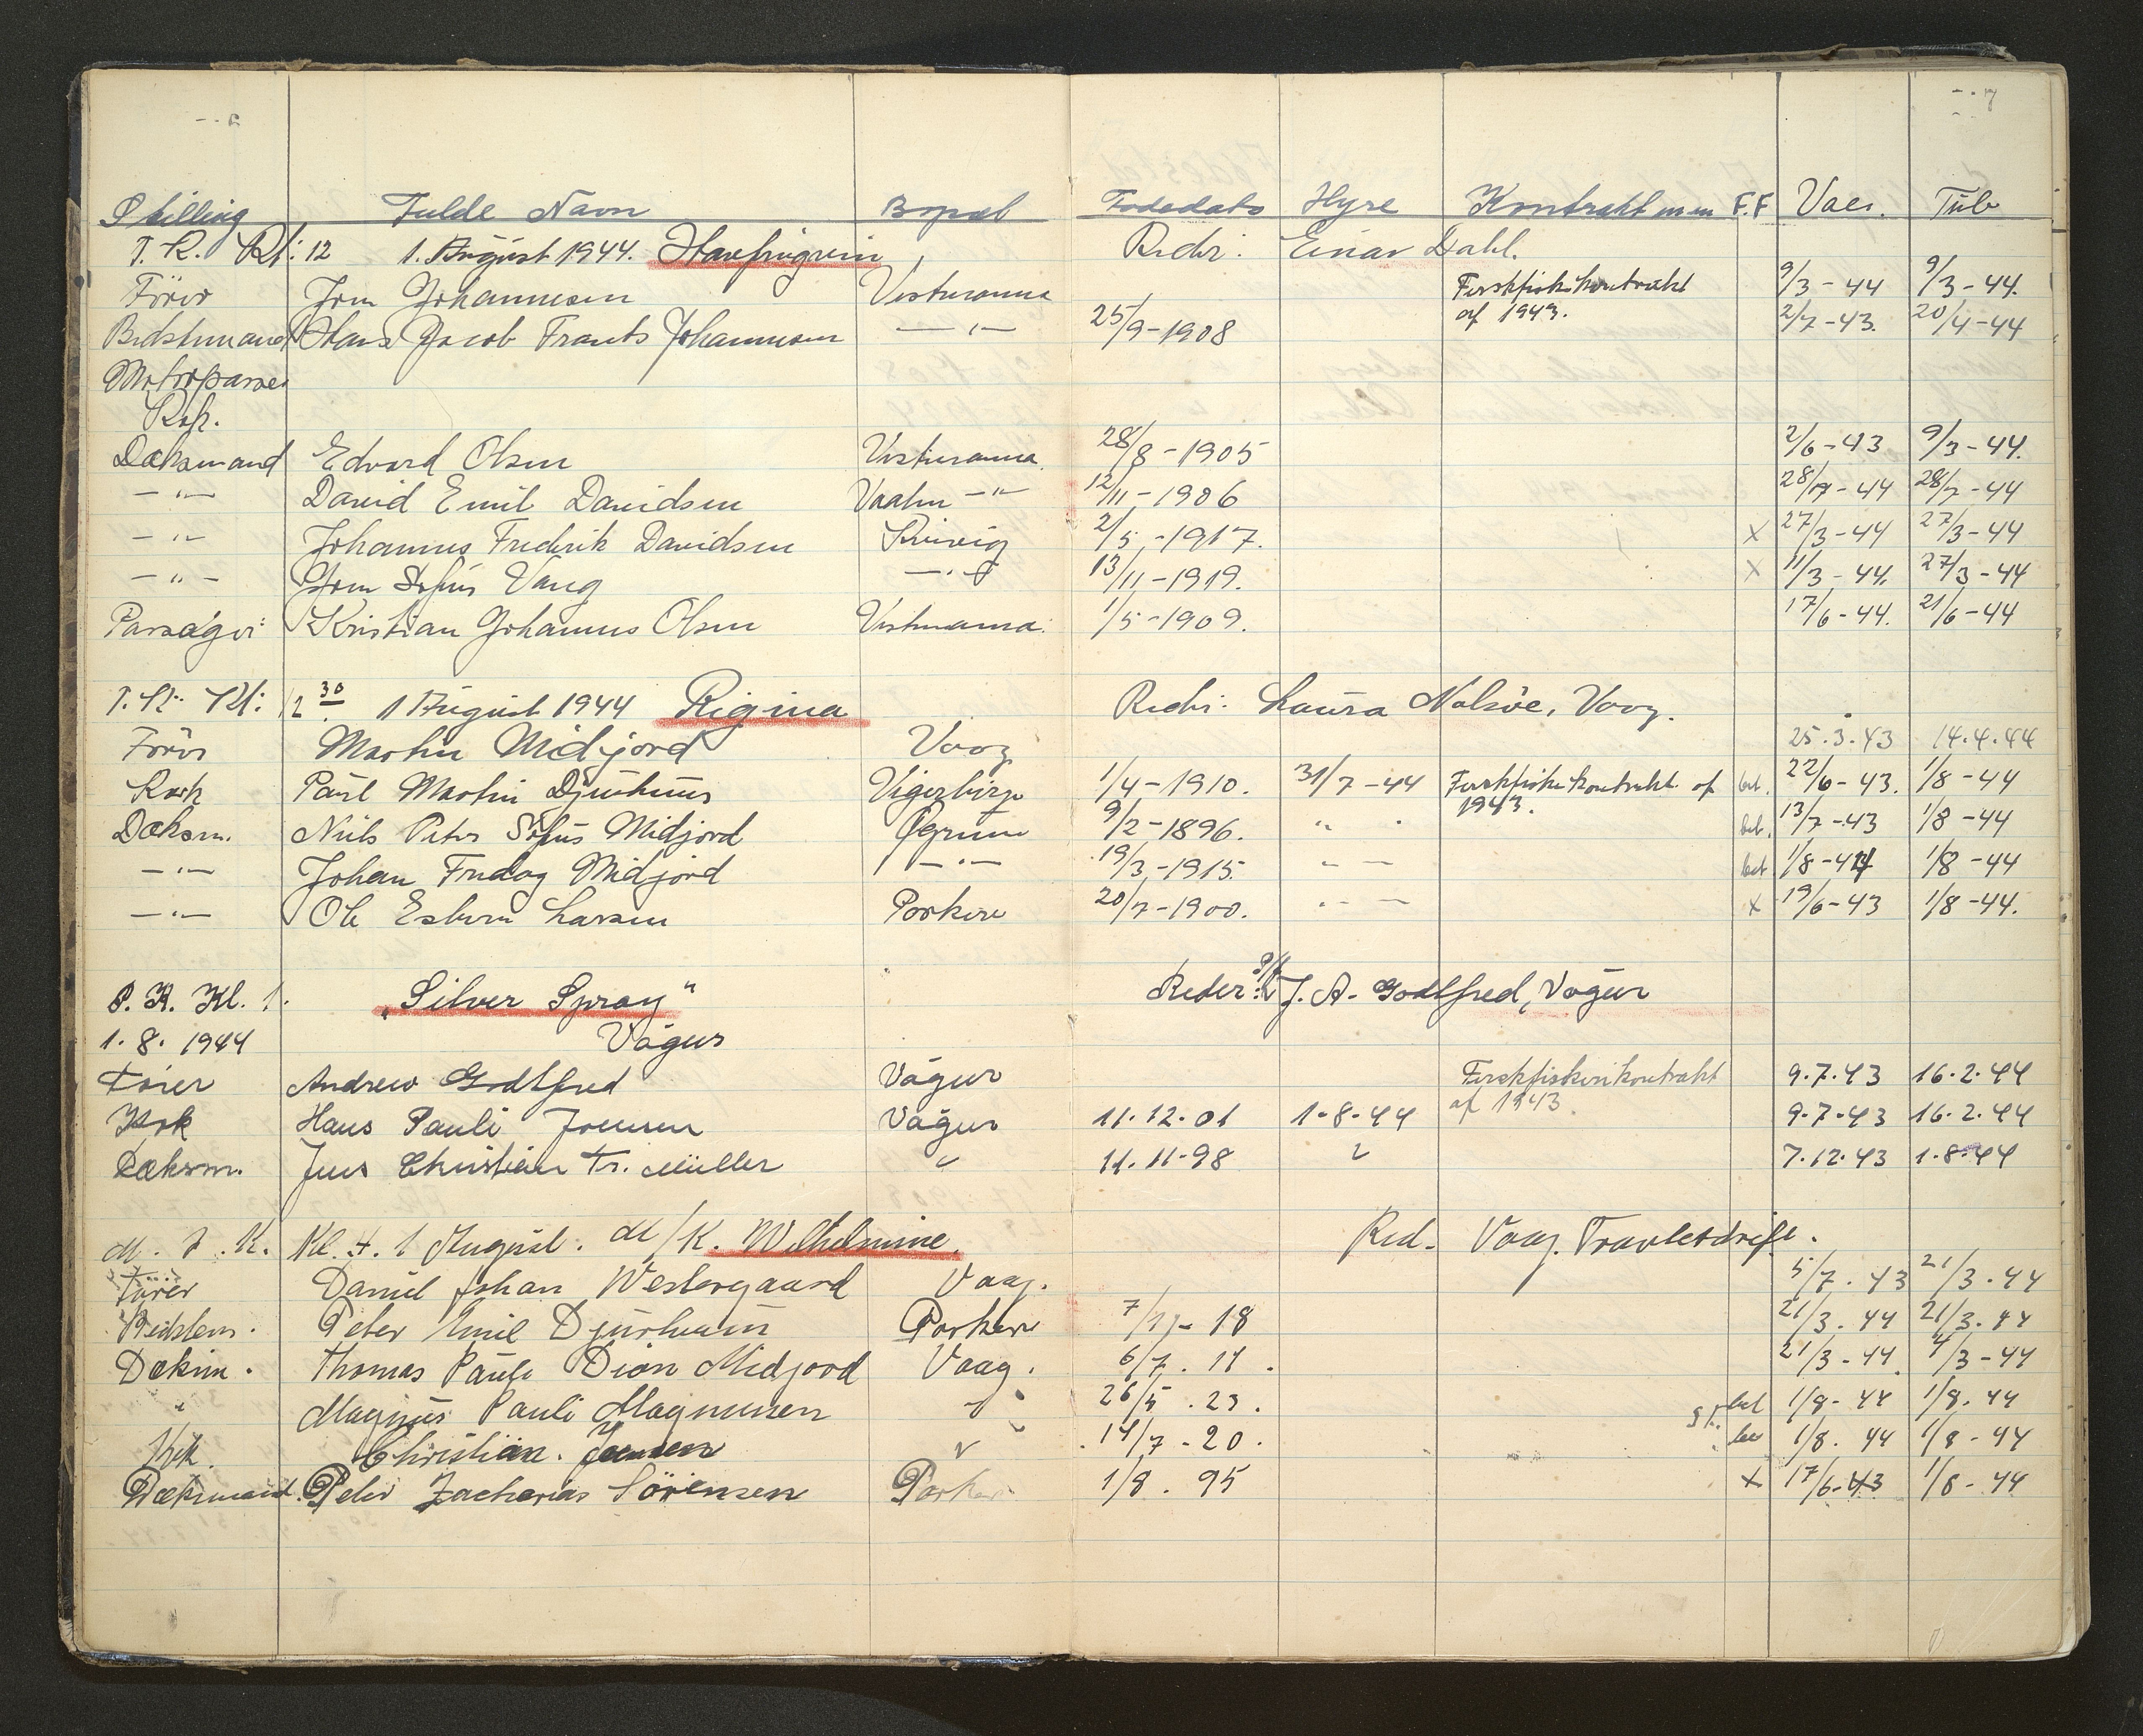 Stilling Fulde Navn Bopæl Fødedato Hyre Kontrakt m m F.F Vacc. Tub
T. K. Kl: 12 1. August 1944. Havfrugvin Rederi: Einar Dahl.
Förer Jom Johannesen Vestmanna Ferskfiskikontrakt 9/3-44 9/3-44.
af 1943.
Bedstmand Hans Jacob Frants Johannesen —"— 25/9-1908 2/7-43. 20/4-44
Motorpasser
Kok.
Dæksmand Edvard Olsen Vestmanna. 28/8-1905 2/6-43 9/3-44.
—"— David Emil Davidsen —"— 12/11-1906 28/7-44 28/7-44
—"— Johannus Fredrik Davidsen Kvivig 2/5-1917. x 27/3-44 27/3-44
—"— Jom Sofus Vang —"— 13/11-1919. x 11/3-44. 27/3-44
Kristian Johannus Olsen Vestmanna. 1/5-1909. 17/6-44. 21/6-44
T. K. Kl: 12 30 1 August 1944 Rigina Rederi: Laura Nolsöe, Vaag.
Förer Martin Midjord Vaag 25.3.43 14.4.44
Kok Paul Martin Djurhuus 1/4-1910. 31/7-44 Ferskfiskikontrakt af bet. 22/6-43. 1/8-44
1943.
Dæksm. Niels Peter Sofus Midjord Øgrum 9/2-1896. " bet. 13/7-43 1/8-44
—"— Johan Fredag Midjord —"— 19/3-1915. "— bet 1/8-44 1/8-44
—"— Ole Esbern Larsen Porkere 20/7-1900. "— x 19/6-43 1/8-44.
P. K. Kl. 1. "Silver Spray" Reder: J. A. Godtfred, Vágur
1.8.1944 Vágur
Förer Andrew Godtfred Vágur Ferskfiskerikontrakt 9.7.43 16.2.44
af 1943.
Kok Hans Pauli Joensen Vágur 11.12.01 1-8-44 9-7-43 16.2.44
Dæksm. Jens Christian Fr. Müller " 11.11-98 " 7.12.43 1.8.44
M. J. K. Kl. 4. 1 August. M/K. Wilhelmine. Red- Vaag. Travletdrift.
Förer Daniel Johan Westergaard Vaag. 5/7.43 21/3.44
Bedstem. Peter Emil Djurhuus Porkere 18 21/3.44 21/3.44
Dæksm. Thomas Pauli Dion Midjord Vaag. 6/7.11. 21/3-44. 4/3-44
" Magnus Pauli Magnussen " 26/5.23. bet 1/8-44 1/8.44
Kok. Christian. Joensen " 14/7-20. 1/8.44 1/8-44
Dæksmand. Peter Zacharias Sörensen Porkere 1/8.95 x 17/6-43 1/8-44